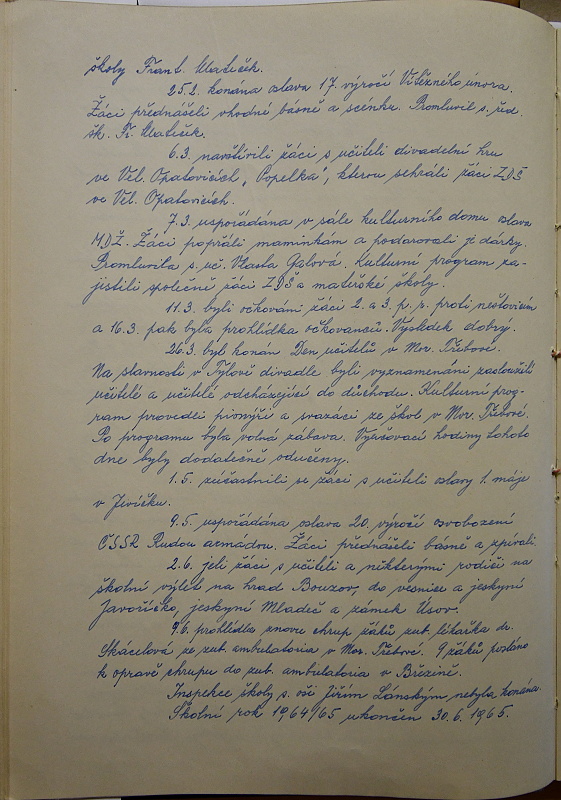 školy Frant. Matiček.
25.2. konána oslava 17. výročí Vítězného února.
Žáci přednášeli vhodné básně a scénku. Promluvil s. řed.
šk. Fr. Matiček.
6.3. navštívili žáci s učiteli divadelní hru
ve Vel. Opatovicích „Popelka", kterou sehráli žáci ZDŠ
ve Vel. Opatovicích.
7.3. uspořádána v sále kulturního domu oslava
MDŽ. Žáci popřáli maminkám a podarovali je dárky.
Promluvila s. uč. Vlasta Galová. Kulturní program za-
jistili společně žáci ZDŠ a mateřské školy.
11.3. byli očkováni žáci 2. a 3. p. r. proti neštovicím
a 16.3. pak byla prohlídka očkovanců. Výsledek dobrý.
26.3. byl konán Den učitelů v Mor. Třebové.
Na slavnosti v Tylově divadle byli vyznamenáni zasloužilí
učitelé a učitelé odcházející do důchodu. Kulturní prog-
ram provedli pionýři a svazáci ze škol v Mor. Třebové.
Po programu byla volná zábava. Vyučovací hodiny tohoto
dne byly dodatečně odučeny.
1.5. zúčastnili se žáci s učiteli oslavy 1. máje
v Jevíčku.
9.5. uspořádána oslava 20. výročí osvobození
ČSSR Rudou armádou. Žáci přednášeli básně a zpívali.
2.6. jeli žáci s učiteli a některými rodiči na
školní výlet na hrad Bouzov, do vesnice a jeskyní
Javoříčko, jeskyní Mladeč a zámek Úsov.
9.6. prohlídla znovu chrup žáků zub. lékařka dr.
Skácelová ze zub. ambulatoria v Mor. Třebové. 9 žáků posláno
k opravě chrupu do zub. ambulatoria v Březině.
Inspekce školy s. oši Jiřím Lánským nebyla konána.
Školní rok 1964/65 ukončen 30.6.1965.